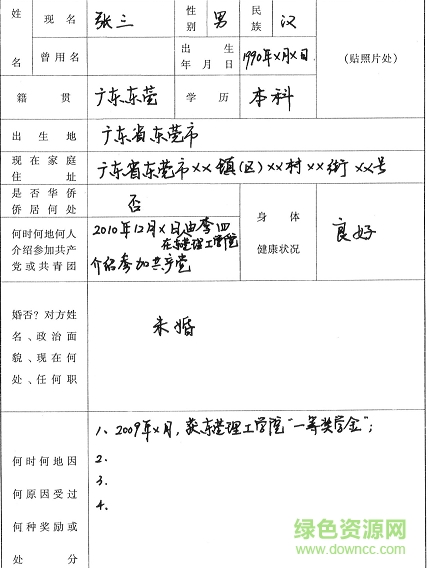 姓 现名 张三 性 男 民 汉
别 族
名 曾用名 出生 1990年X月X日 (贴照片处)
年月日
籍贯 广东东莞 学历 本科
出生地 广东省东莞市
现在家庭 广东省东莞市XX镇(区)XX村XX街XX号
住址
是否华侨 否 身体 良好
侨居何处 健康状况
何时何地何人 2010年12月X日由李四
介绍参加共产 在东莞理工学院
党或共青团 介绍参加共产党
婚否?对方姓 未婚
名、政治面
貌、现在何
处、任何职
1、2009年X月,获东莞理工学院“一等奖学金”;
何时何地因 2.
何原因受过 3.
何种奖励或 4.
处分
绿色资源网
www.downcc.com